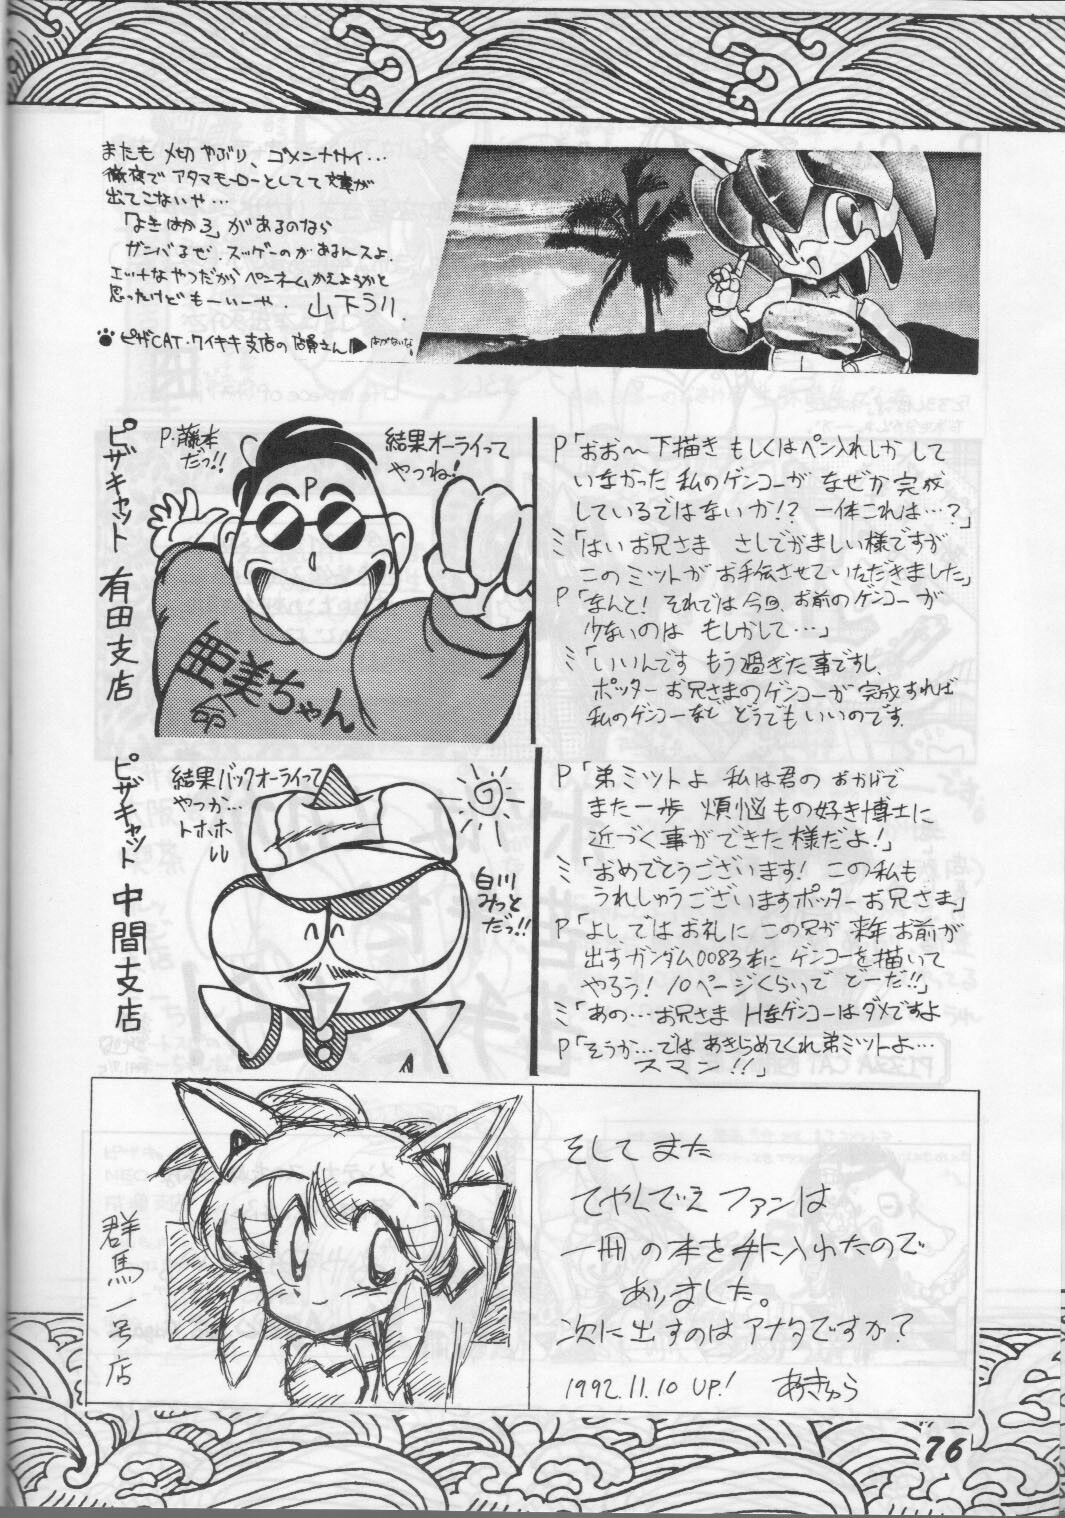 またも〆切やぶり、ゴメンナサイ…
徹夜でアタマモーローとしてて文章が
出てこないや…
「よきはから3」があるのなら
ガンバるぜ、スッゲーのがあるんスよ。
エッチなやつだからペンネームかえようかと
思ったけどもーいーや.山下うり.
ピザCAT・ワイキキ支店の店員さん▶
ピザキャット 有田支店
P・藤本
だっ!!
結果オーライって
やつね!
P
亜美ちゃん
命
P「おお〜下描きもしくはペン入れしかして
いなかった私のゲンコーがなぜか完成
しているではないか!?一体これは…?」
ミ「はいお兄さま さしでがましい様ですが
このミットがお手伝させていただきました」
P「なんと!それでは今回、お前のゲンコーが
少ないのは もしかして…」
ミ「いいんです もう過ぎた事ですし、
ポッターお兄さまのゲンコーが完成すれば
私のゲンコーなど どうでもいいのです.
ピザキャット 中間支店
結果バックオーライって
やつか…
トホホ
白川
みっと
だっ!!
P「弟ミットよ 私は君のおかげで
また一歩 煩悩もの好き博士に
近づく事ができた様だよ!」
ミ「おめでとうございます! この私も
うれしゅうございますポッターお兄さま」
P「よし、ではお礼にこの兄が 来年お前が
出すガンダム0083本にゲンコーを描いて
やろう!10ページくらいで どーだ!!」
ミ「あの…お兄さま Hなゲンコーはダメですよ
P「そうか…ではあきらめてくれ弟ミットよ…
スマン!!」
群馬一号店
そしてまた
てやんでえファンは
一冊の本を手に入れたので
ありました。
次に出すのはアナタですか?
1992.11.10 UP! あきゅら
76